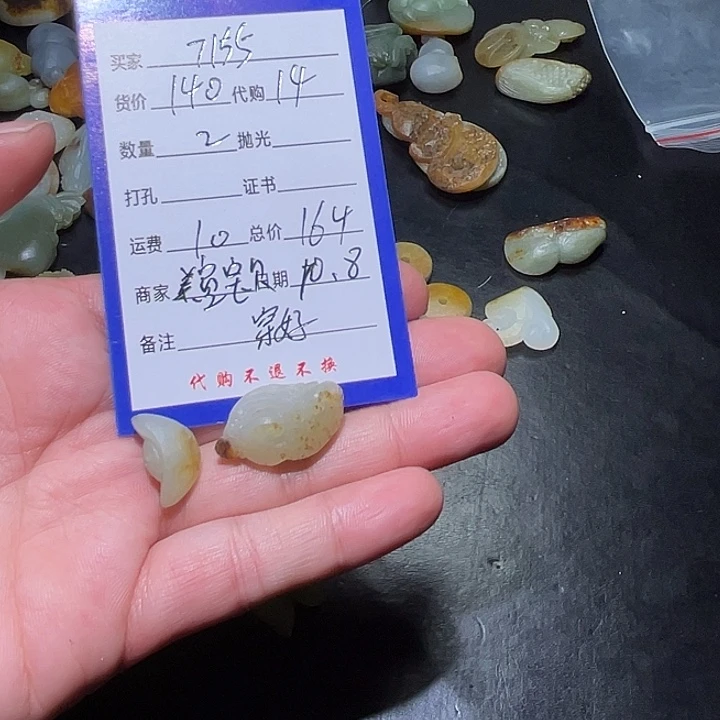 买家 7155
货价 140 代购 14
数量 2 抛光
打孔 证书
运费 10 总价 164
商家 日期 10.8
备注 完好
代购不退不换